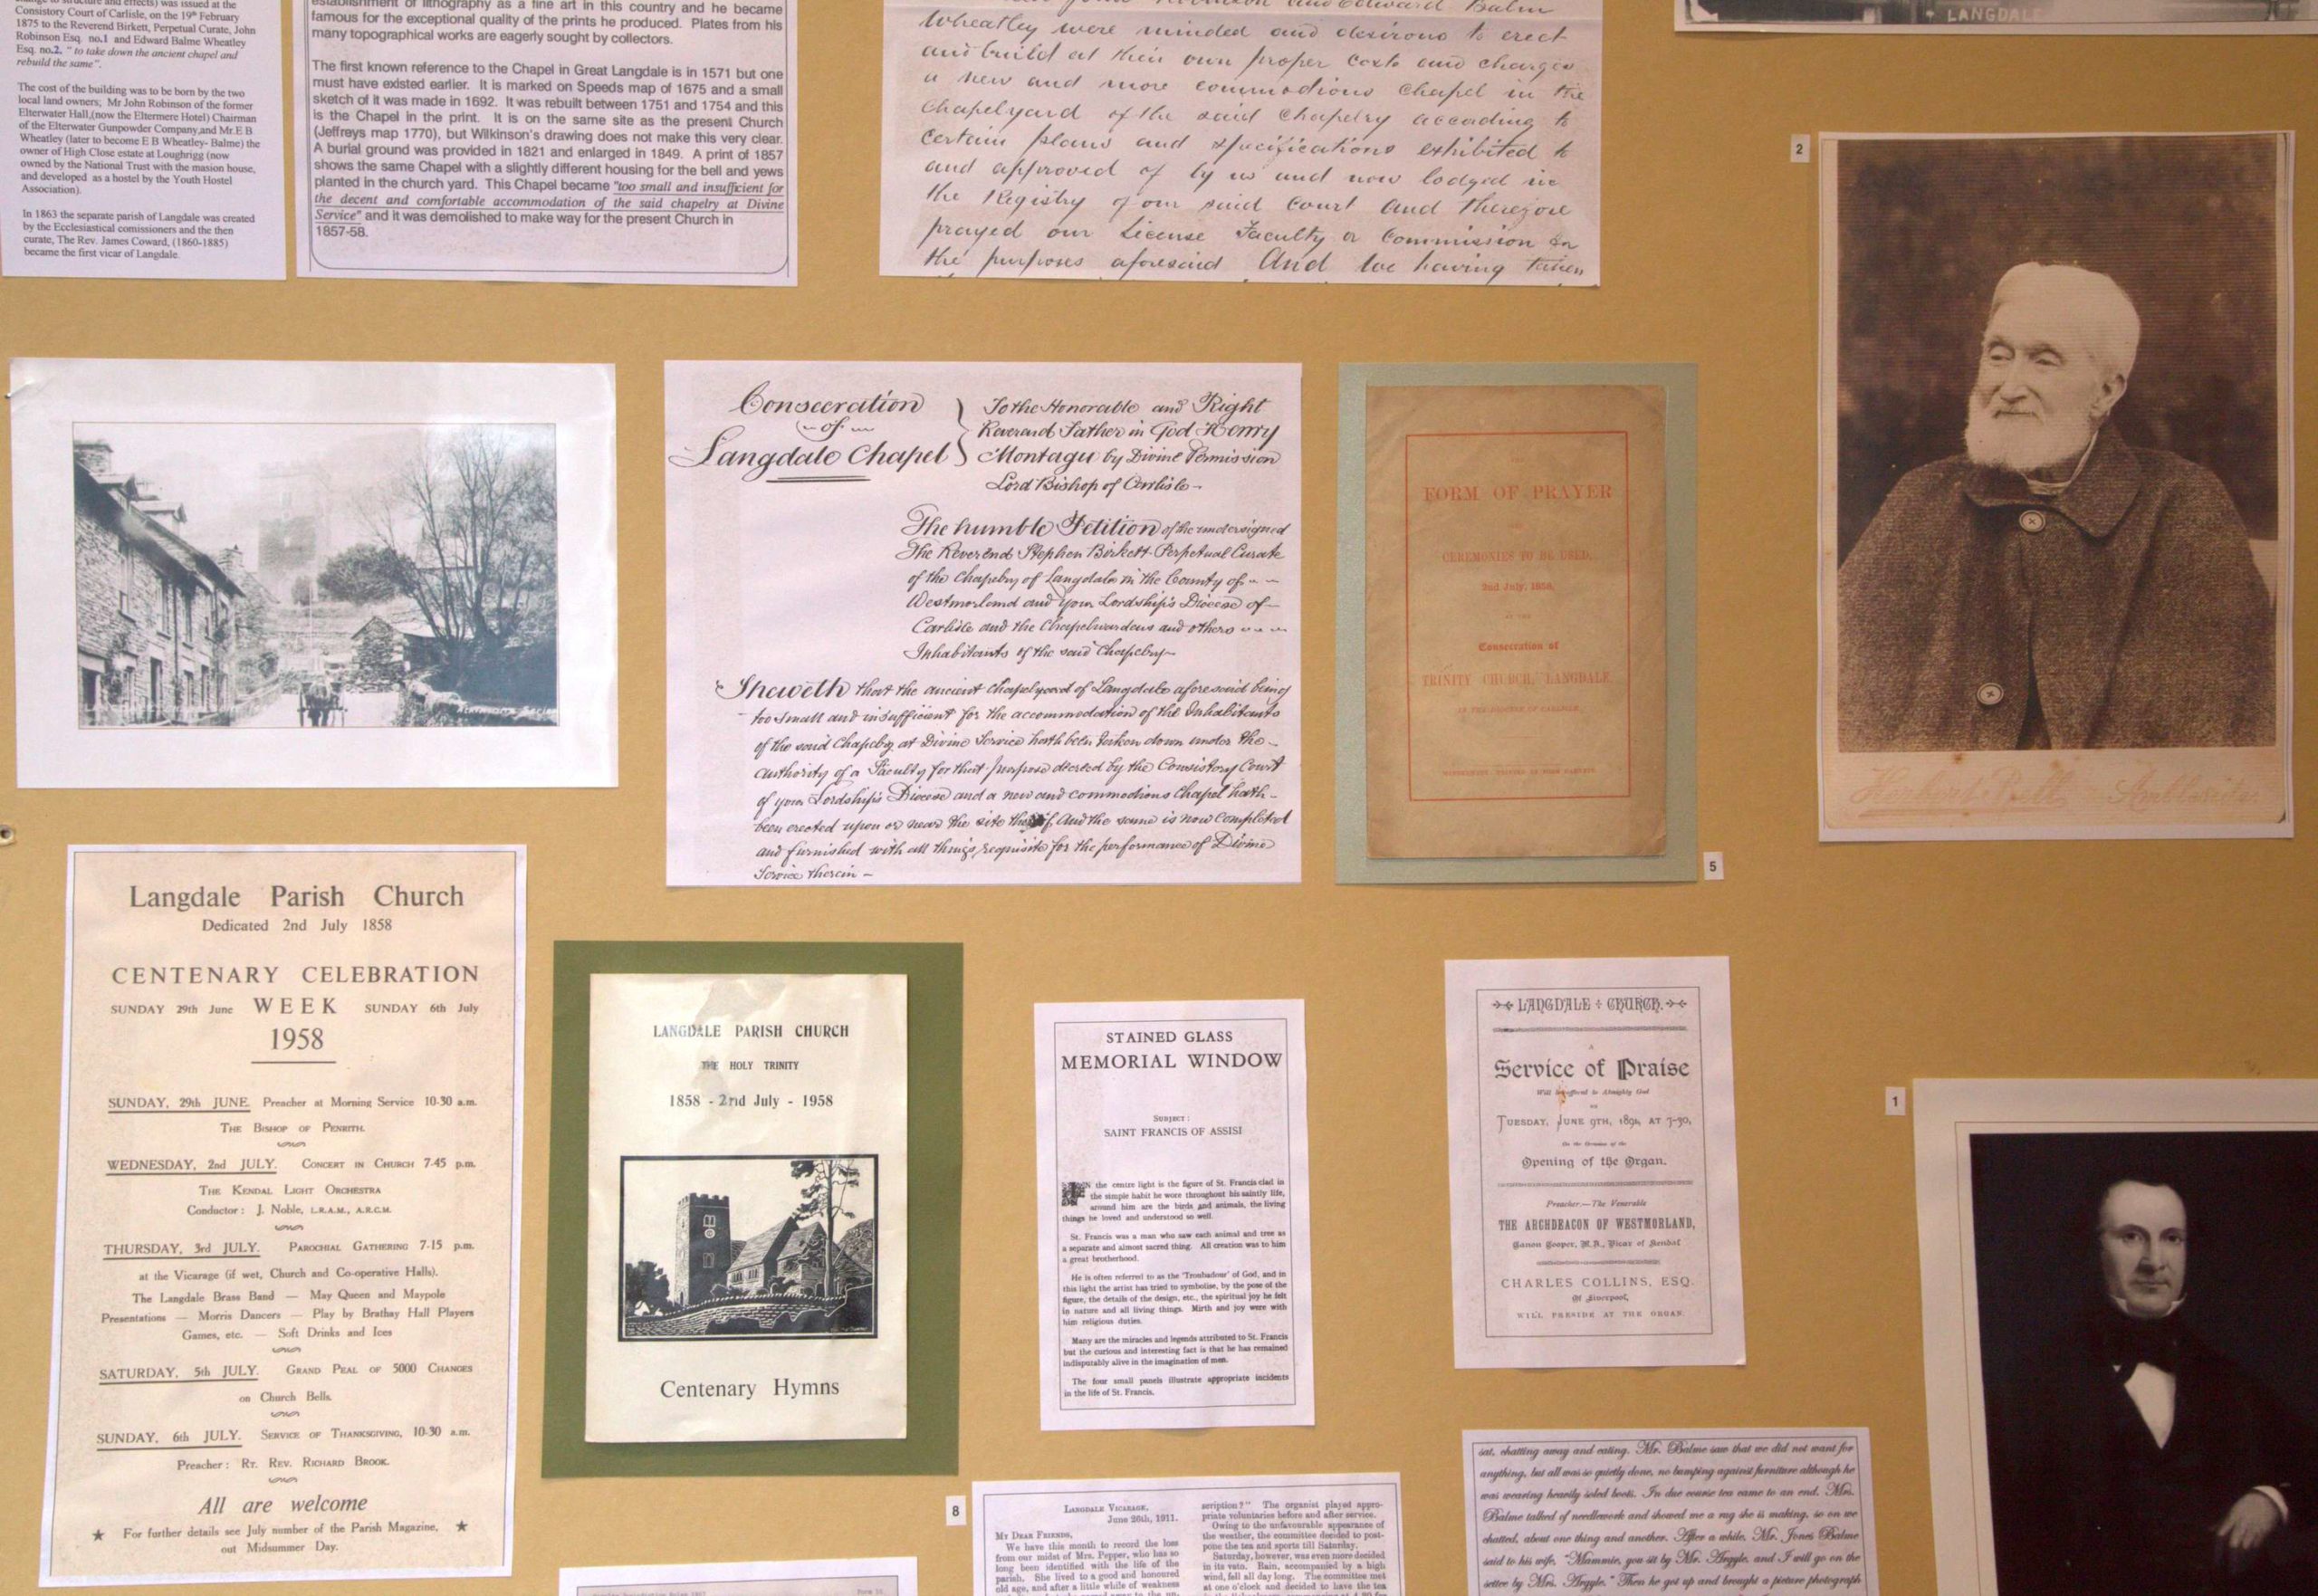 Consistory Court of Carlisle, on the 19th February
1875 to the Reverend Birkett, Perpetual Curate, John
Robinson Esq. no.1 and Edward Balme Wheatley
Esq. no.2, " to take down the ancient chapel and
rebuild the same".
The cost of the building was to be born by the two
local land owners; Mr John Robinson of the former
Elterwater Hall,(now the Eltermere Hotel) Chairman
of the Elterwater Gunpowder Company,and Mr.E B
Wheatley (later to become E B Wheatley- Balme) the
owner of High Close estate at Loughrigg (now
owned by the National Trust with the masion house,
and developed as a hostel by the Youth Hostel
Association).
In 1863 the separate parish of Langdale was created
by the Ecclesiastical comissioners and the then
curate, The Rev. James Coward, (1860-1885)
became the first vicar of Langdale.
establishment of lithography as a fine art in this country and he became
famous for the exceptional quality of the prints he produced. Plates from his
many topographical works are eagerly sought by collectors.
The first known reference to the Chapel in Great Langdale is in 1571 but one
must have existed earlier. It is marked on Speeds map of 1675 and a small
sketch of it was made in 1692. It was rebuilt between 1751 and 1754 and this
is the Chapel in the print. It is on the same site as the present Church
(Jeffreys map 1770), but Wilkinson's drawing does not make this very clear.
A burial ground was provided in 1821 and enlarged in 1849. A print of 1857
shows the same Chapel with a slightly different housing for the bell and yews
planted in the church yard. This Chapel became "too small and insufficient for
the decent and comfortable accommodation of the said chapelry at Divine
Service" and it was demolished to make way for the present Church in
1857-58.
Robinson and Edward Balm
Wheatley were minded and desirous to erect
and build at their own proper costs and charges
a new and more commodious Chapel in the
Chapelyard of the said Chapelry according to
certain plans and specifications exhibited to
and approved of by us and now lodged in
the Registry of our said Court And therefore
prayed our License Faculty or Commission for
the purposes aforesaid And We having taken
LANGDALE
2
Consecration
of
Langdale Chapel
To the Honorable and Right
Reverend Father in God Henry
Montagu by Divine Permission
Lord Bishop of Carlisle
The humble Petition of the undersigned
The Reverend Stephen Birkett Perpetual Curate
of the Chapelry of Langdale in the County of
Westmorland and your Lordship's Diocese of
Carlisle and the Chapelwardens and others
Inhabitants of the said Chapelry
Sheweth that the ancient Chapelyard of Langdale aforesaid being
too small and insufficient for the accommodation of the Inhabitants
of the said Chapelry at Divine Service hath been taken down under the
authority of a Faculty for that purpose decreed by the Consistory Court
of your Lordship's Diocese and a new and commodious Chapel hath
been erected upon or near the site thereof And the same is now completed
and furnished with all things requisite for the performance of Divine
Service therein
FORM OF PRAYER
CEREMONIES TO BE USED,
2nd July, 1858,
AT THE
Consecration of
TRINITY CHURCH, LANGDALE,
IN THE DIOCESE OF CARLISLE.
5
Ambleside
Langdale Parish Church
Dedicated 2nd July 1858
CENTENARY CELEBRATION
SUNDAY 29th June WEEK SUNDAY 6th July
1958
SUNDAY, 29th JUNE. Preacher at Morning Service 10-30 a.m.
THE BISHOP OF PENRITH.
WEDNESDAY, 2nd JULY. CONCERT IN CHURCH 7-45 p.m.
THE KENDAL LIGHT ORCHESTRA
Conductor : J. Noble, L.R.A.M., A.R.C.M.
THURSDAY, 3rd JULY. PAROCHIAL GATHERING 7-15 p.m.
at the Vicarage (if wet, Church and Co-operative Halls).
The Langdale Brass Band — May Queen and Maypole
Presentations — Morris Dancers — Play by Brathay Hall Players
Games, etc. — Soft Drinks and Ices
SATURDAY, 5th JULY. GRAND PEAL OF 5000 CHANGES
on Church Bells.
SUNDAY, 6th JULY. SERVICE OF THANKSGIVING, 10-30 a.m.
Preacher : RT. REV. RICHARD BROOK.
All are welcome
★ For further details see July number of the Parish Magazine, ★
out Midsummer Day.
LANGDALE PARISH CHURCH
THE HOLY TRINITY
1858 - 2nd July - 1958
Centenary Hymns
8
STAINED GLASS
MEMORIAL WINDOW
SUBJECT :
SAINT FRANCIS OF ASSISI
IN the centre light is the figure of St. Francis clad in
the simple habit he wore throughout his saintly life,
around him are the birds and animals, the living
things he loved and understood so well.
St. Francis was a man who saw each animal and tree as
a separate and almost sacred thing. All creation was to him
a great brotherhood.
He is often referred to as the 'Troubadour' of God, and in
this light the artist has tried to symbolise, by the pose of the
figure, the details of the design, etc., the spiritual joy he felt
in nature and all living things. Mirth and joy were with
him religious duties.
Many are the miracles and legends attributed to St. Francis
but the curious and interesting fact is that he has remained
indisputably alive in the imagination of men.
The four small panels illustrate appropriate incidents
in the life of St. Francis.
LANGDALE CHURCH.
A
Service of Praise
Will be offered to Almighty God
ON
TUESDAY, JUNE 9TH, 1891, AT 7-30,
On the Occasion of the
Opening of the Organ.
Preacher.—The Venerable
THE ARCHDEACON OF WESTMORLAND,
Canon Cooper, M.A., Vicar of Kendal
CHARLES COLLINS, ESQ.
Of Liverpool,
WILL PRESIDE AT THE ORGAN.
1
LANGDALE VICARAGE,
June 26th, 1911.
MY DEAR FRIENDS,
We have this month to record the loss
from our midst of Mrs. Pepper, who has so
long been identified with the life of the
parish. She lived to a good and honoured
old age, and after a little while of weakness
scription?" The organist played appro-
priate voluntaries before and after service.
Owing to the unfavourable appearance of
the weather, the committee decided to post-
pone the tea and sports till Saturday.
Saturday, however, was even more decided
in its veto. Rain, accompanied by a high
wind, fell all day long. The committee met
at one o'clock and decided to have the tea
sat, chatting away and eating. Mr. Balme saw that we did not want for
anything, but all was so quietly done, no bumping against furniture although he
was wearing heavily soled boots. In due course tea came to an end. Mrs.
Balme talked of needlework and showed me a rug she is making, so on we
chatted, about one thing and another. After a while, Mr. Jones Balme
said to his wife, "Mammie, you sit by Mr. Argyle, and I will go on the
settee by Mrs. Argyle." Then he got up and brought a picture photograph